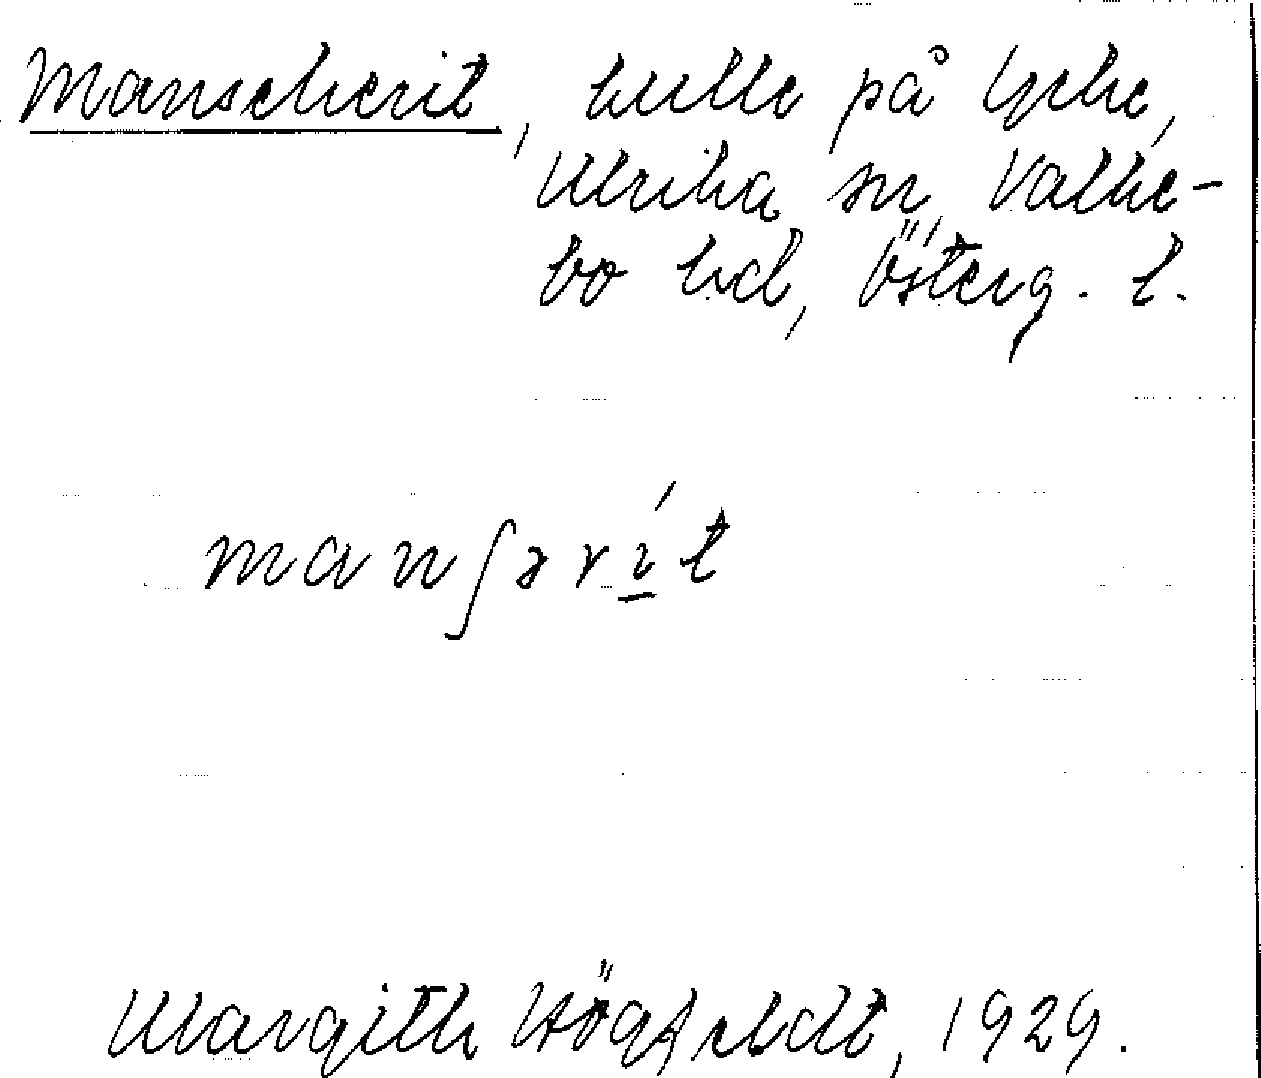 Manscherit, kulle på Lycke,
Ulrika sn, Valke-
bo hd, Österg. l.
manʃərít
Margith Högfeldt, 1929.